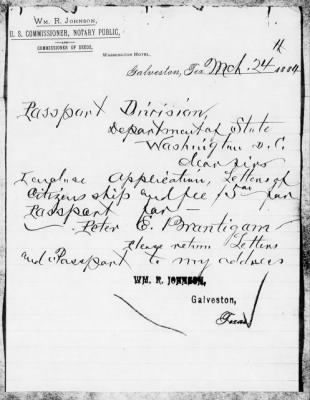 WM. R. JOHNSON,
U. S. COMMISSIONER, NOTARY PUBLIC,
AND
COMMISSIONER OF DEEDS,
WASHINGTON HOTEL.
Galveston, Tex. Mch. 24th 1884
Passport Division,
Department of State
Washington D.C.
dear sirs
I enclose Application, Letters of
Citizenship and fee for
Passport for
Peter E. Brantigam
Please return Letters
and Passport to my address
WM. R. JOHNSON,
Galveston,
Texas